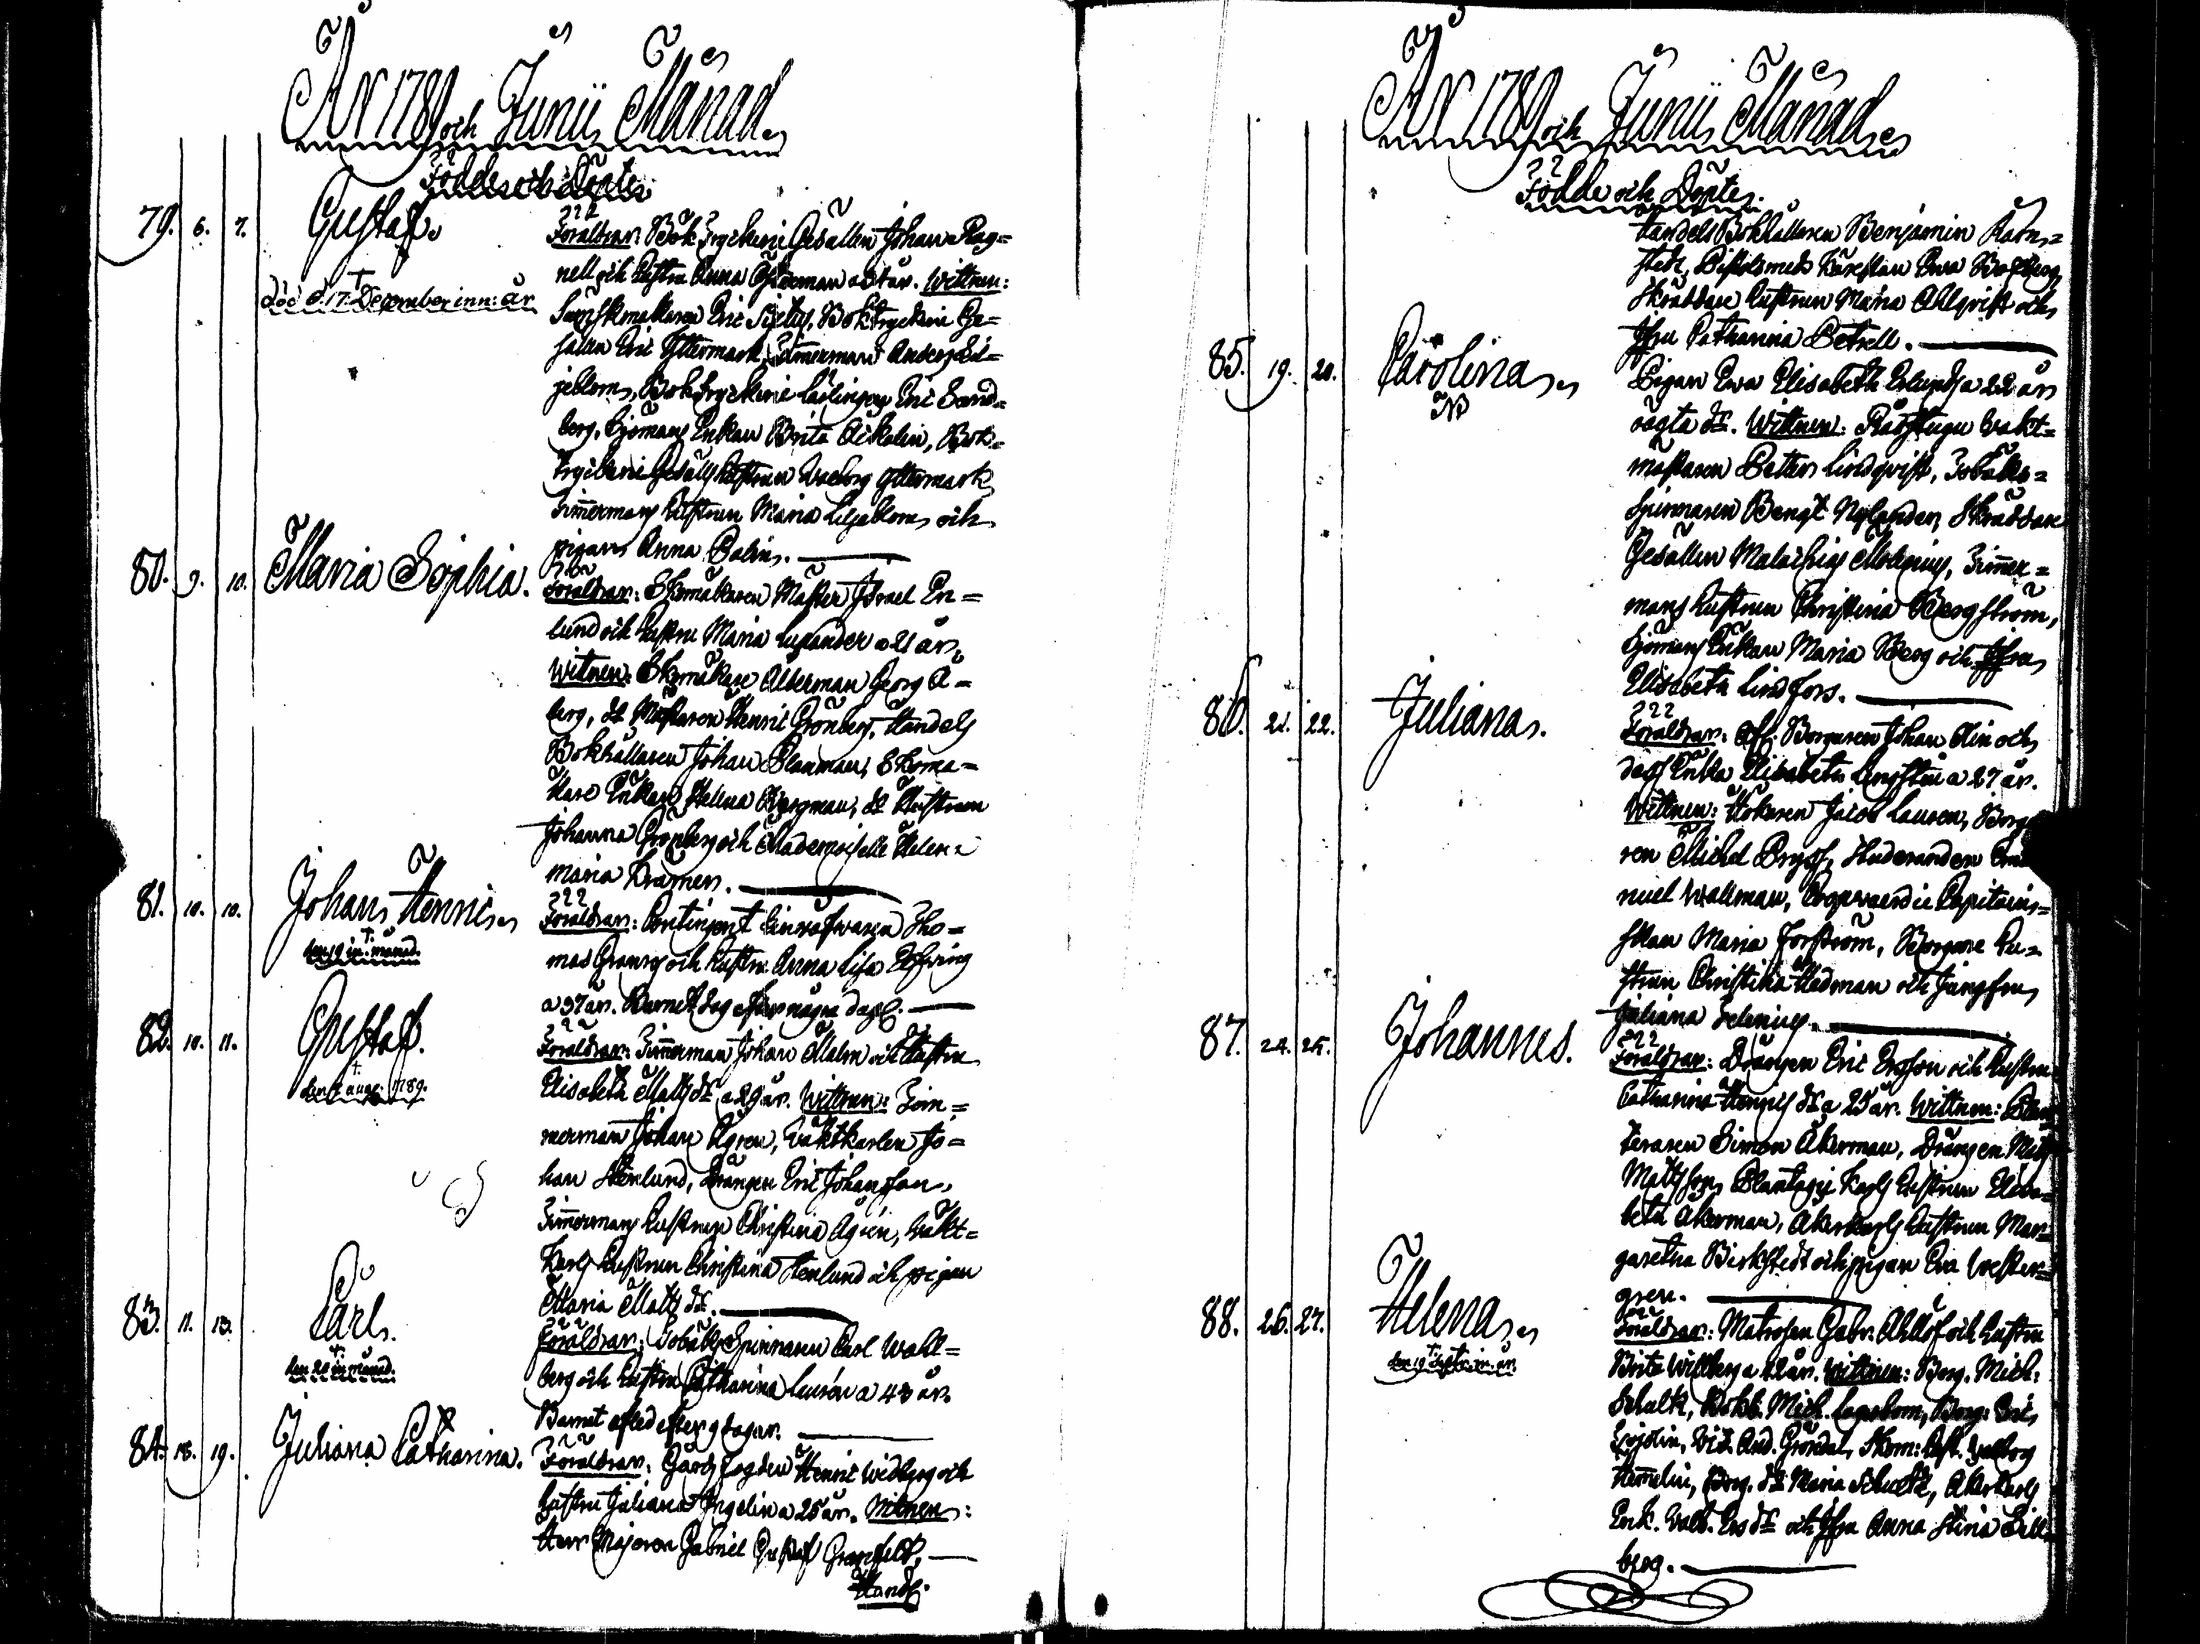 År 1789 och Junii Månad.
Födde och Döpte.
79. 6. 7. Gustaf.
död d. 17. December inn: år
Föräldrar: Bok Tryckeri Gesällen Johan Rag=
nell och hustru Anna Åkerman a år. Wittnen:
Eric Sixtus, Boktryckeri Ge=
sälen Eric Yttermark, Timmerman Anders Lil=
jeblom, Boktryckeri Lärlingen Eric Sand=
berg, Sjömans Enkan Brita Aikalin, Bok=
tryckeri Gesälls hustrun Walborg Yttermark
Timmermans hustrun Maria Liljeblom, och
pigan Anna Palin.
80. 9. 10. Maria Sophia.
Föräldrar: Skomakaren Mäster Israel En=
lund och hustru Maria a 21 år,
Witnen: Skomakare Ålderman Georg A=
berg, dt Mästaren Henric Grönberg, Handels
Bokhållaren Johan Planman, Skoma=
kare Enkan Helena Bergman, dt Hustrun
Johanna Grönberg och Mademoiselle Helena
Maria Kramer.
81. 10. 10. Johan Henric
den 19 in: månad.
Föräldrar: Contingent Tho=
mas Granroos och hustru Anna Lisa Elfving
a 37 år. Barnet dog efter några dagar.
82. 10. 11. Gustaf.
den aug: 1789.
Föräldrar: Timmerman Johan Malm och Hustru
Elisabeth Matts dr a 29 år. Wittnen: Tim=
merman Johan Ågren, Vaktkarlen Jo=
han Stenlund, Drängen Eric Johansson,
Timmermans hustrun Christina Ågren, Vakt=
karls hustrun Christina Stenlund och pigan
Maria Matts dr.
83. 11. 13. Carl.
den 20 in: månad.
Föräldrar: Tobaks Spinnaren Carl Wahl=
berg och hustru Catharina a 43 år.
Barnet afled efter 9 dagar.
84. 18. 19. Juliana Catharina.
Föräldrar: Gårds Fogden Henric Widberg och
hustru Juliana Angelin a 25 år. Witnen:
Herr Majoren Gabriel Gustaf Granfelt,
Handl:
År 1789 och Junii Månad.
Födde och Döpte.
Handels Bokhållaren Benjamin Karn=
stedt, Pistolsmeds Kärestan Ewa Bergberg,
Skräddare hustrun Maria Ahlqvist och
Jfru Catharina Petrell.
85. 19. 20. Carolina
NB
Pigan Ewa Elisabeth Eslunds a 22 år
oägta dr. Wittnen: Rådstugu Vakt=
mästaren Petter Lindqvist, Tobaks=
spinnaren Bengt Nylander, Skräddare
Gesällen Malachias Molenius, Timmer=
mans hustrun Christina Bergström,
Sjömans Enkan Maria Berg och Jfru
Elisabeth Lindfors.
86. 21. 22. Juliana.
Föräldrar: Aff. Borgaren Johan Alin och
dess Enka Elisabeth a 27 år.
Wittnen: Hökaren Jacob Lauren, Borga
ren Michel Pryss, Studeranden Ema
nuel Wallman, Cogwaerdie Capitains=
skan Maria Forström, Borgare hu=
strun Christina Hedman och Jungfru
Juliana Selenius.
87. 24. 25. Johannes.
Föräldrar: Drängen Eric Ersson och hustru
Catharina Henrics dr a 25 år. Wittnen: Plan
teraren Simon Åkerman, Drängen Matts
Mattsson, Plantagie Karls hustrun Elisa=
beth Åkerman, Åkerkarls hustrun Mar=
garetha Birkstedt och pigan Eva Wester=
gren.
88. 26. 27. Helena
den 19 Sept: in: år.
Föräldrar: Matrosen Gabr. Ahllöf och hustru
Brita Willberg a 42 år. Wittnen: Borg. Mich:
Schultz, Bokb. Mich. Lagerbom, Borg: Eric
And. Gröndal, Skom: hust. Walborg
Hemelin, Borg. dt Maria Schultz, Åkerkarls
Enk. Walb. Ers dr och Jfru Anna Stina Sill=
berg.